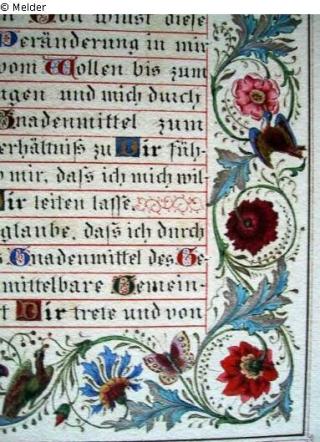 © Melder
Du willst diese
Veränderung in mir
vom Wollen bis zum
gen und mich durch
Gnadenmittel zum
erhältniß zu Dir füh-
mir, dass ich mich wil-
Dir leiten lasse.
glaube, dass ich durch
Gnadenmittel des Ge-
mittelbare Gemein-
t Dir trete und von